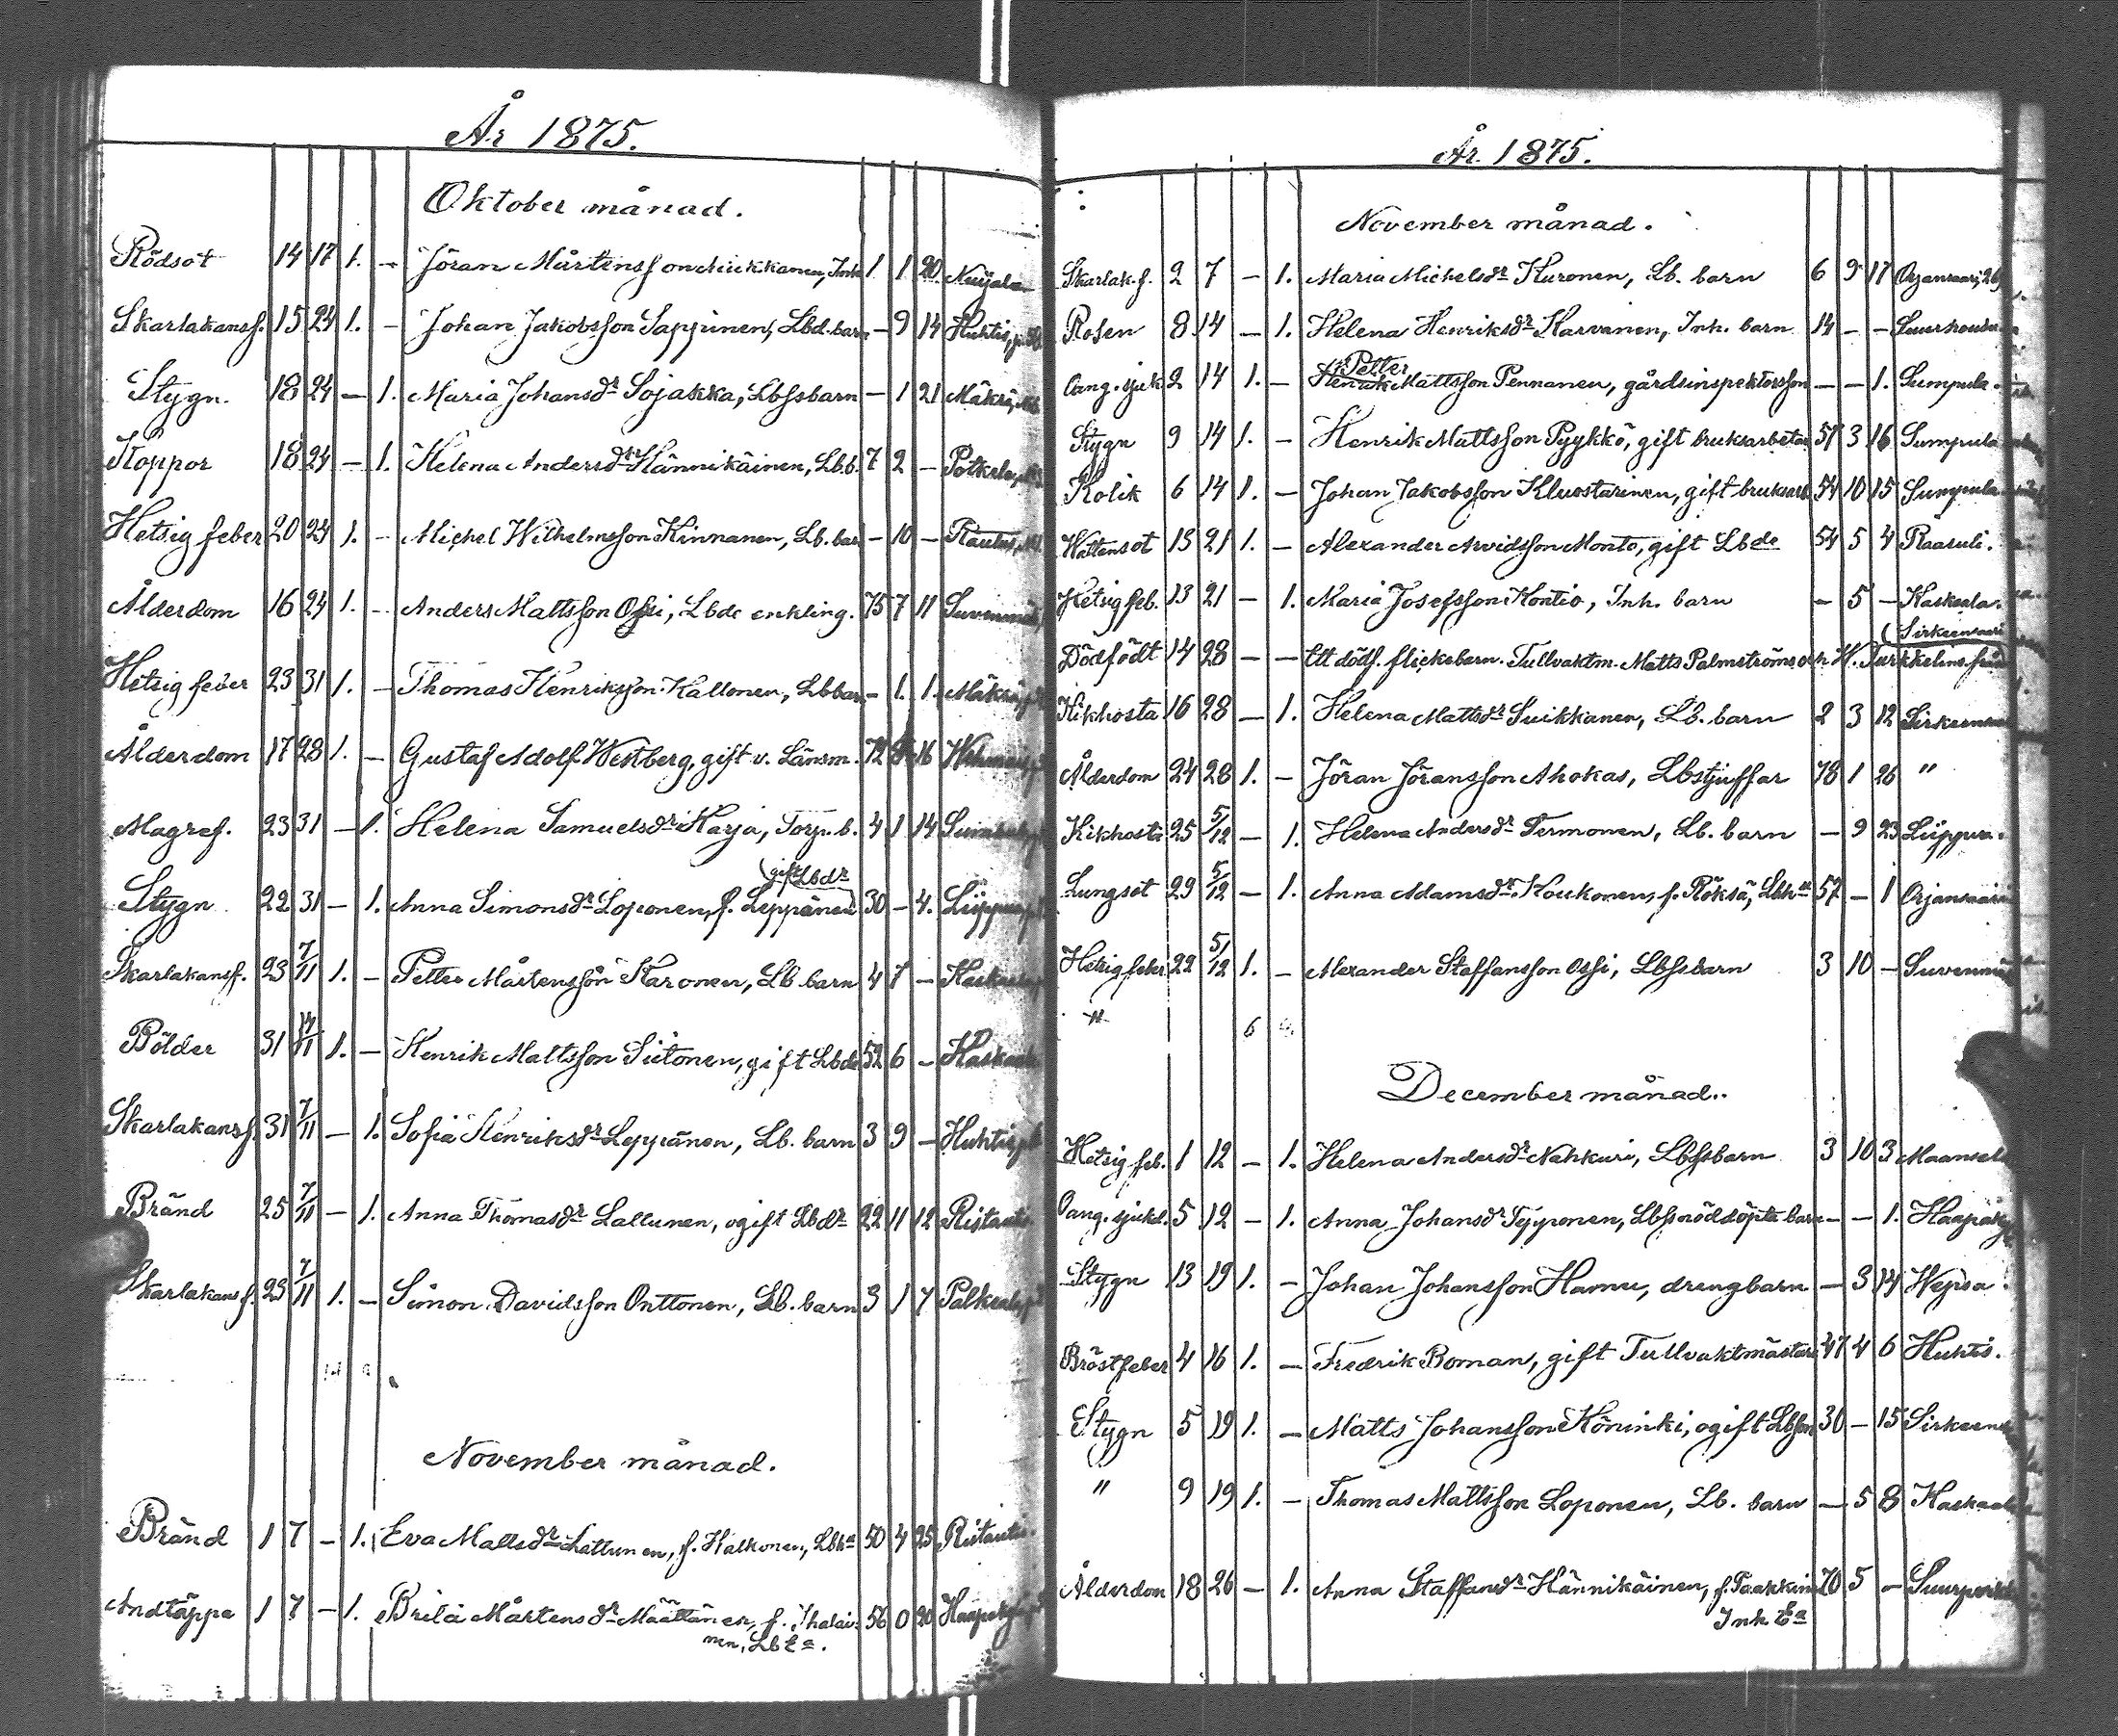 År 1875.
Oktober månad.
Rödsot 14 17 1. - Jöran Mårtensson Miikkanen, Inh 1. 1 20 Nuijala
Skarlakansf. 15 24 1. - Johan Jakobsson Sappinen, Lbd. barn - 9 14 Huhtis,
Stygn. 18 24 - 1. Maria Johansdr Sojakka, Lbssbarn - 1 21 Mäkrä,
Koppor 18 24 - 1. Helena Andersdr Hännikäinen, Lb.b. 7 2 - Potkela,
Hetsig feber 20 24 1. - Michel Wilhelmsson Kinnanen, Lb. bar - 10 - Rautus,
Ålderdom 16 24 1. - Anders Mattsson Ossi, Lbde enkling. 75 7 11 Suvenmäki,
Hetsig feber 23 31 1. - Thomas Henriksson Kallonen, Lb bar - 1. 1. Mäkrä,
Ålderdom 17 23 1. - Gustaf Adolf Westberg, gift v. Länsm. 72 16
Magref. 23 31 - 1. Helena Samuelsdr Harja, Torp. b. 4 1 14
(gift Lbdr
Stygn 22 31 - 1. Anna Simonsdr Loponen, f. Leppänen 30 - 4. Liippua,
Skarlakansf. 23 7/11 1. - Petter Mårtensson Karonen, Lb barn 4 7 - Kaskaala
Bölder 31 7/11 1. - Henrik Mattsson Siitonen, gift Lbde 52 6 - Kaskaala
Skarlakansf. 31 7/11 - 1. Sofia Henriksdr Leppänen, Lb. barn 3 9 - Huhtis,
Bränd 25 7/11 - 1. Anna Thomasdr Lattunen, ogift Lbdr 22 11 12 Ristautis
Skarlakansf. 23 7/11 1. - Simon Davidsson Onttonen, Lb. barn 3 1 7 Palkeala,
November månad.
Bränd 1 7 - 1. Eva Mattsdr Lattunen, f. Halkonen, Lbha 50 4 25 Ristautis.
Andtäppa 1 7 - 1. Brita Mårtensdr Määttänen, f. Ihalai- 56 0 20 Haapakylä,
nen, Lb Ea.
År. 1875.
November månad.
Skarlak. f. 2 7 - 1. Maria Michelsdr Kuronen, Lb. barn 6 9 17 Orjansaari,
Rosen 8 14 - 1. Helena Henriksdr Karvanen, Inh. barn 14 - - Suurhousu
Petter
Oang. sjuk 2 14 1. - Henrik Mattsson Pennanen, gårdsinspektorsson - - 1. Sumpula.
Stygn 9 14 1. - Henrik Mattsson Pyykkö, gift bruksarbetar 57 3 16 Sumpula
Kolik 6 14 1. - Johan Jakobsson Kluostarinen, gift bruksarb 54 10 15 Sumpula
Wattensot 13 21 1. - Alexander Arvidsson Monto, gift Lbde 54 5 4 Raasuli.
Hetsig feb. 13 21 - 1. Maria Josefsson Kontio, Inh. barn - 5 - Kaskaala.
(Sirkeensaari
Dödfödt 14 28 - - Ett dödf. flickebarn. Tullvaktm. Matts Palmströms och H. Turkkelins. från
Kikhosta 16 28 - 1. Helena Mattsdr Suikkanen, Lb. barn 2 3 12 Sirkeensaari
Ålderdom 24 28 1. - Jöran Jöransson Ahokas, Lbstjuffar 78 1 26 "
Kikhosta 25 5/12 - 1. Helena Andersdr Termonen, Lb. barn - 9 23 Liippua.
Lungsot 29 5/12 - 1. Anna Adamsdr Koukonen, f. Röksä, Lbha 57 - 1 Orjansaari
Hetsig feber 22 5/12 1. - Alexander Staffansson Ossi, Lbssbarn 3 10 - Suvenmäki
"
6
December månad.
Hetsig feb. 1 12 - 1. Helena Andersdr Nahkuri, Lbssbarn 3 10 3 Maanselkä
Oang. sjukd. 5 12 - 1. Anna Johansdr Tyyponen, Lbssnöddöpta barn - - 1. Haapakylä
Stygn 13 19 1. - Johan Johansson Hamu, drengbarn. - 3 14 Wepsa.
Bröstfeber 4 16 1. - Fredrik Boman, gift Tullvaktmästare 47 4 6 Huhtis.
Stygn 5 19 1. - Matts Johansson Köninki, ogift Lbson 30 - 15 Sirkeens
" 9 19 1. - Thomas Mattsson Loponen, Lb. barn - 5 8 Kaskaala
Ålderdom 18 26 - 1. Anna Staffansdr Hännikäinen, f. Paakkinen 70 5 - Suurporkku
Inh. Ea